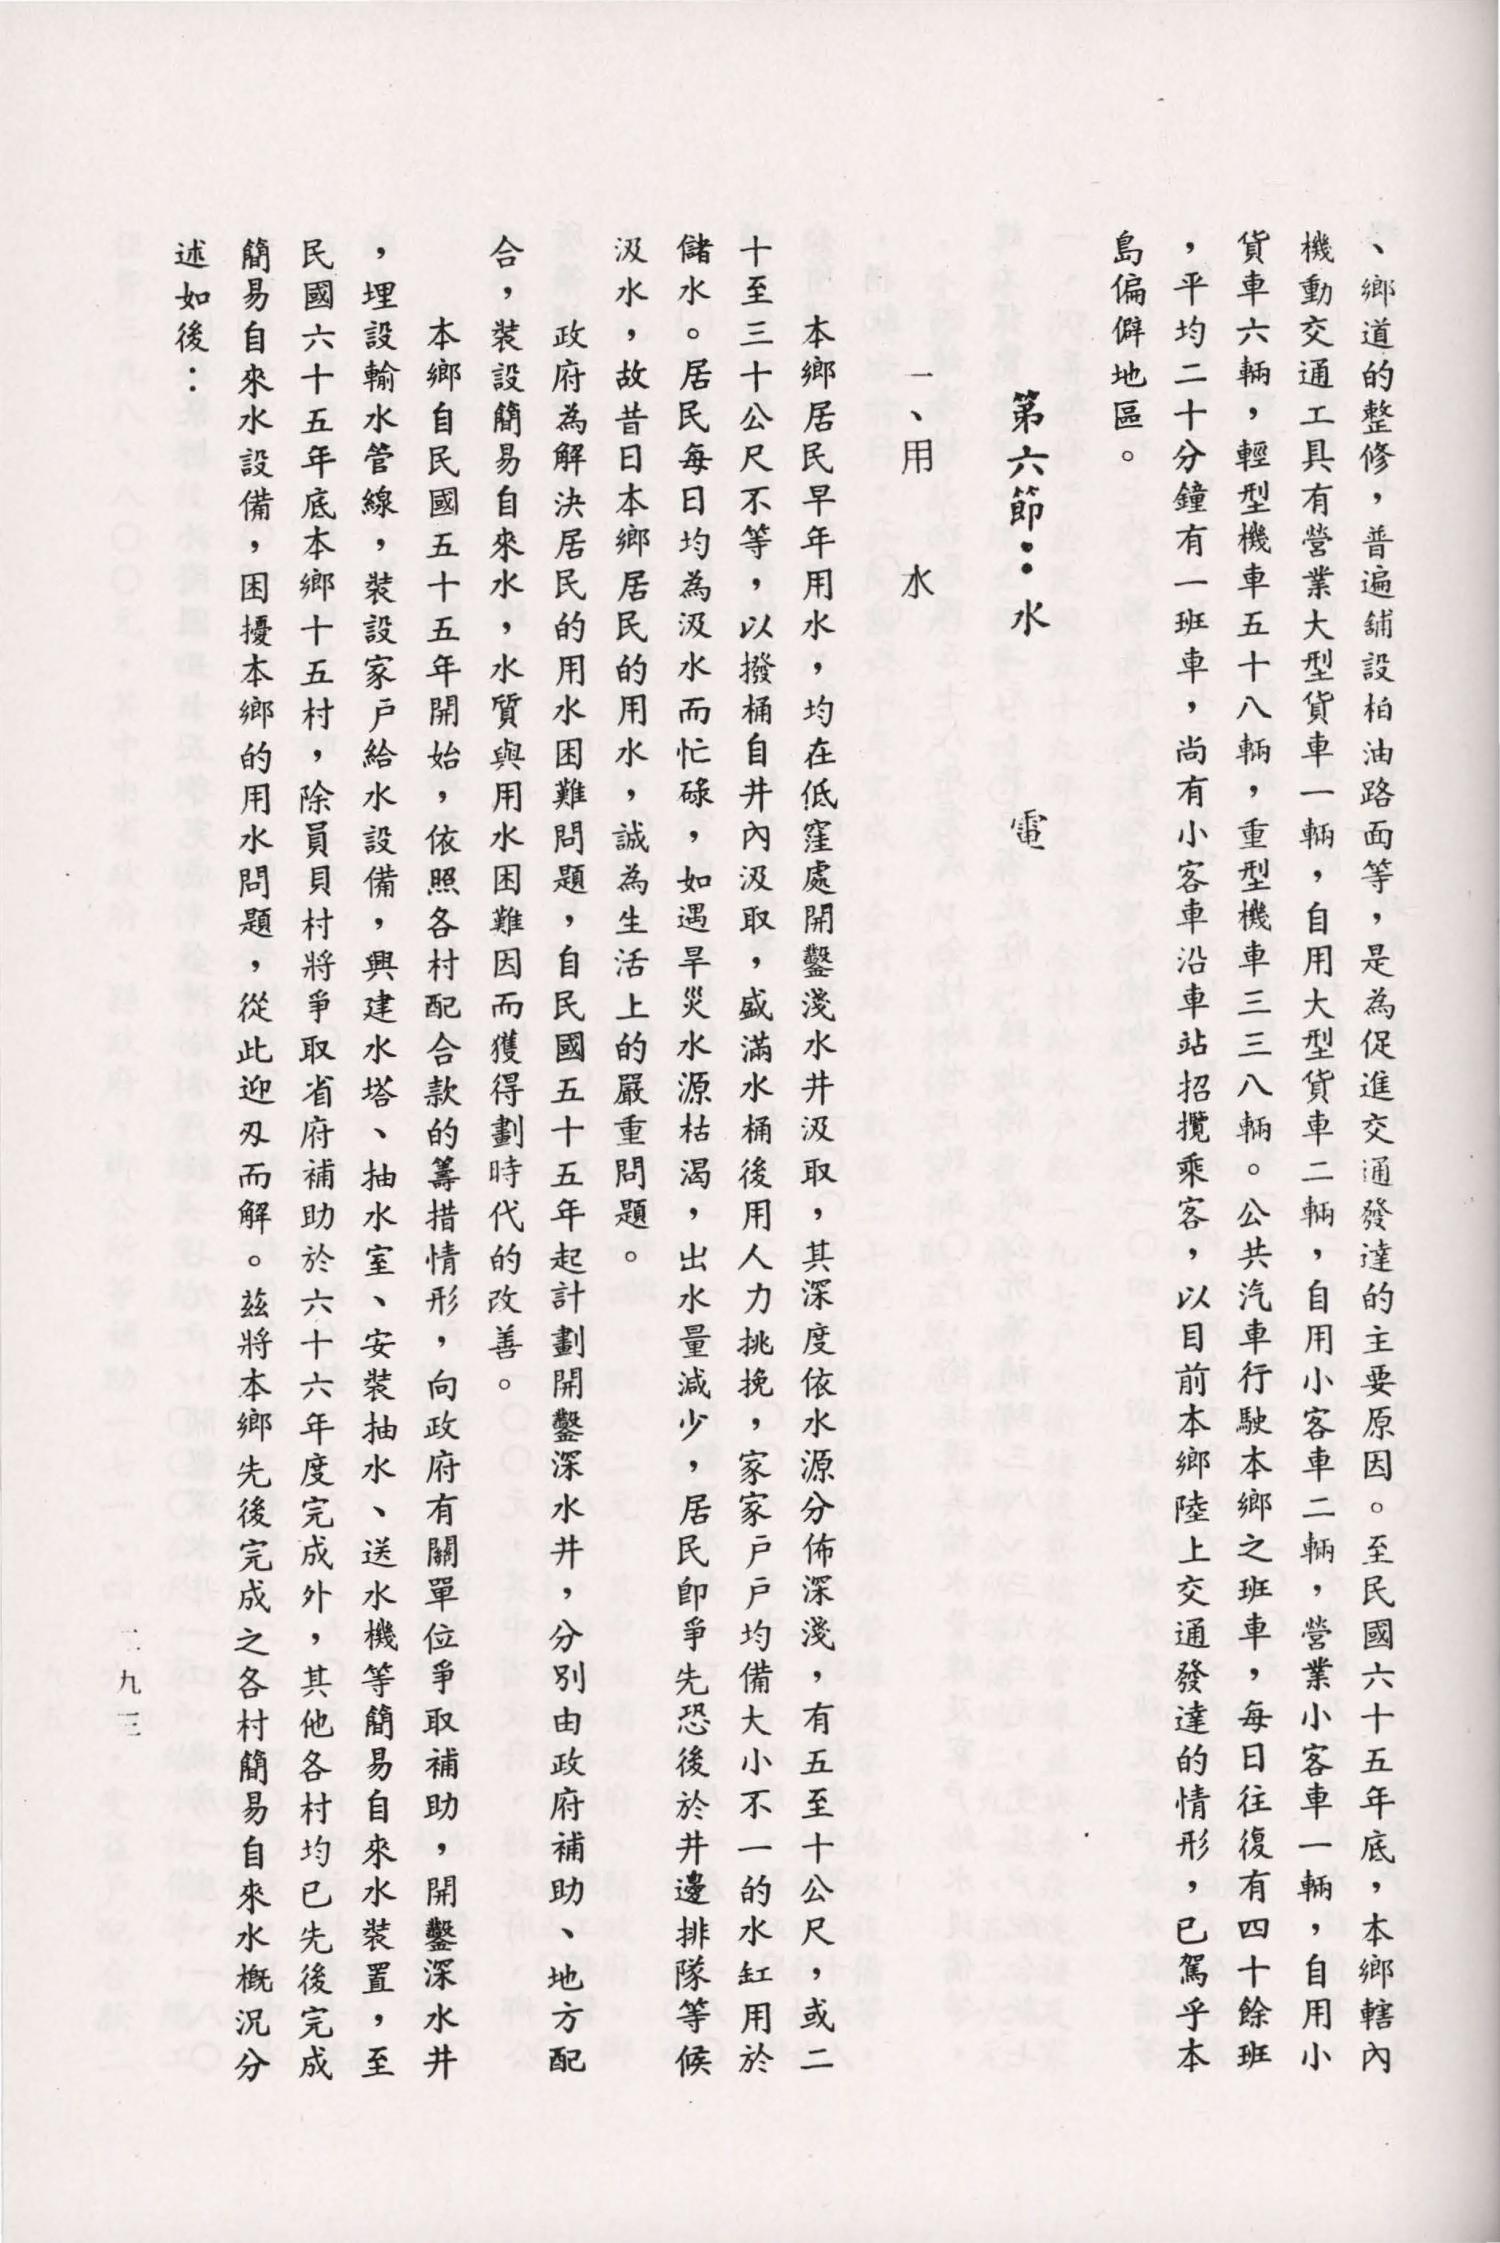 、鄉道的整修，普遍舖設柏油路面等，是為促進交通發達的主要原因。至民國六十五年底，本鄉轄內
機動交通工具有營業大型貨車一輛，自用大型貨車二輛，自用小客車二輛，營業小客車一輛，自用小
貨車六輛，輕型機車五十八輛，重型機車三三八輛。公共汽車行駛本鄉之班車，每日往復有四十餘班
，平均二十分鐘有一班車，尚有小客車沿車站招攬乘客，以目前本鄉陸上交通發達的情形，已駕乎本
島偏僻地區。
第六節：水　　電
一、用　水
本鄉居民早年用水，均在低窪處開鑿淺水井汲取，其深度依水源分佈深淺，有五至十公尺，或二
十至三十公尺不等，以撥桶自井內汲取，盛滿水桶後用人力挑挽，家家戶戶均備大小不一的水缸用於
儲水。居民每日均為汲水而忙碌，如遇旱災水源枯渴，出水量減少，居民卽爭先恐後於井邊排隊等候
汲水，故昔日本鄉居民的用水，誠為生活上的嚴重問題。
政府為解決居民的用水困難問題，自民國五十五年起計劃開鑿深水井，分別由政府補助、地方配
合，裝設簡易自來水，水質與用水困難因而獲得劃時代的改善。
本鄉自民國五十五年開始，依照各村配合款的籌措情形，向政府有關單位爭取補助，開鑿深水井
，埋設輸水管線，裝設家戶給水設備，興建水塔、抽水室、安裝抽水、送水機等簡易自來水裝置，至
民國六十五年底本鄉十五村，除員貝村將爭取省府補助於六十六年度完成外，其他各村均已先後完成
簡易自來水設備，困擾本鄉的用水問題，從此迎刄而解。茲將本鄉先後完成之各村簡易自來水概況分
述如後：
二九三